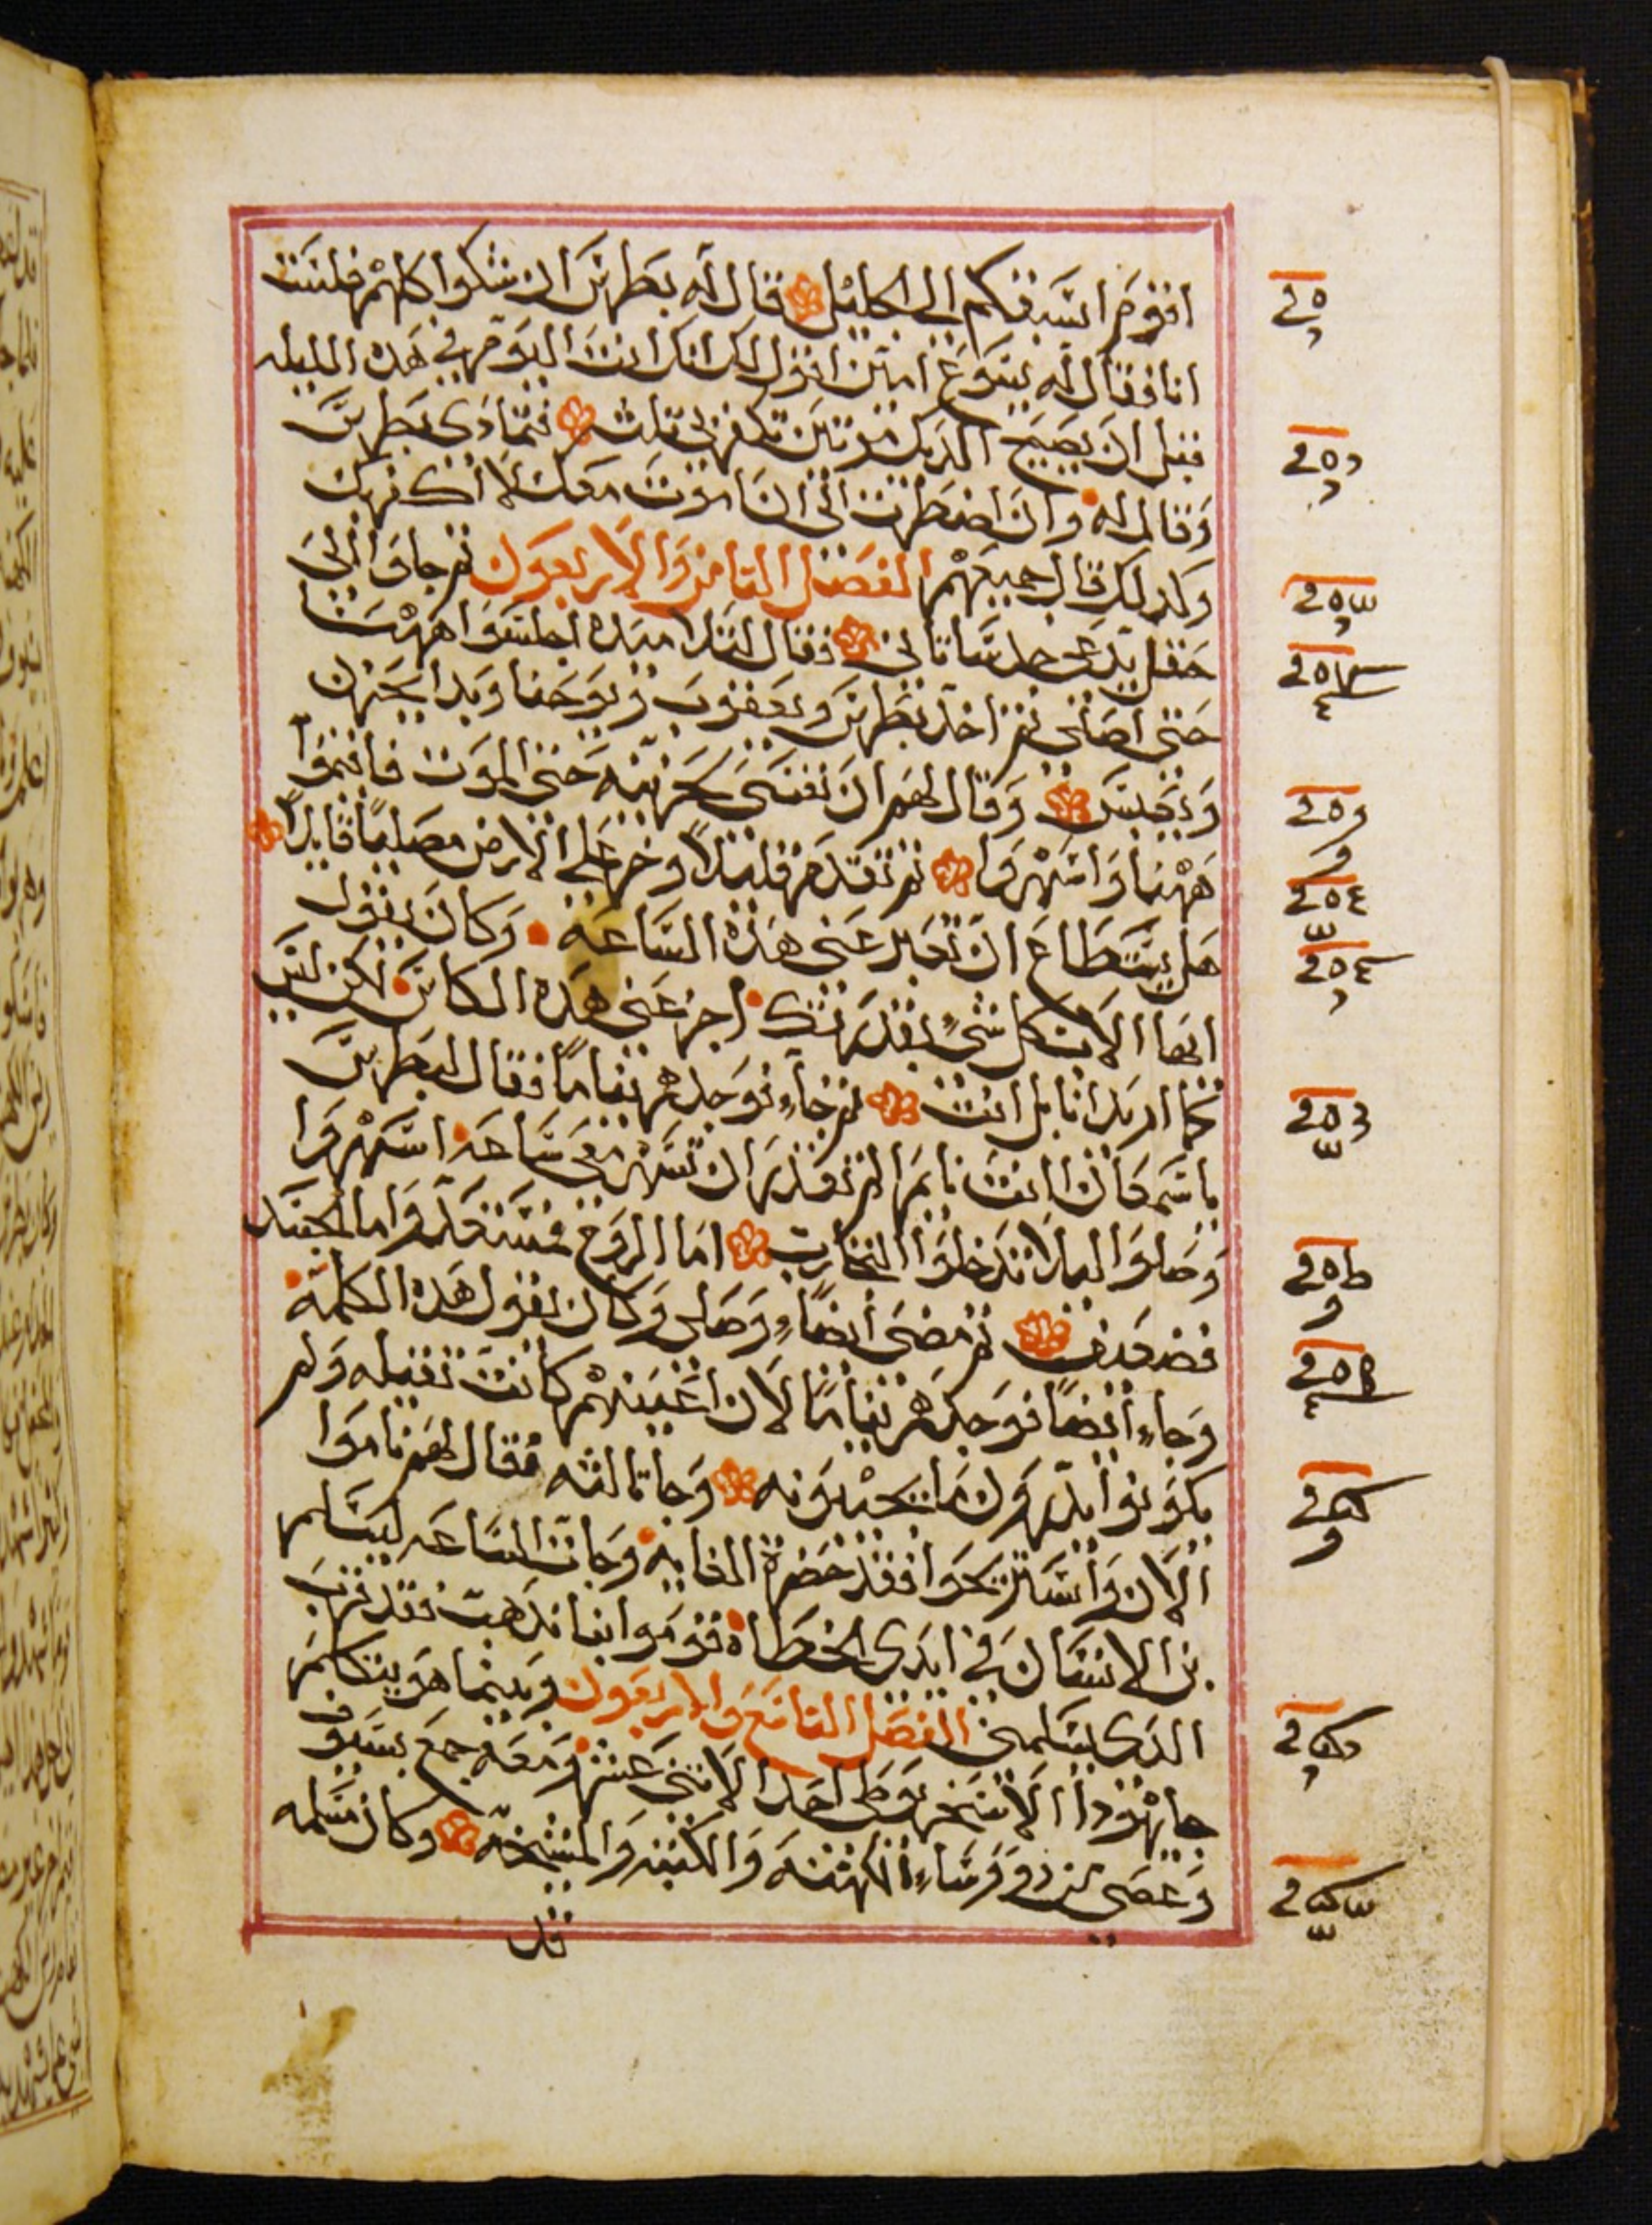 اقوم اسبقكم الى الجليل قال له بطرس ان شكوا كلهم فلست
انا فقال له يسوع امين اقول لك انك انت اليوم في هذه الليله
قبل ان يصيح الديك مرتين تكفر بي ثلث فتمادى بطرس
وقال له وان اضطررت الى ان اموت معك لا اكفر بك
وكذلك قال جميعهم الفصل الثامن والاربعون ثم جاوا الى
حقل يدعى جدسمانى فقال لتلاميده اجلسوا ههنا
حتى اصلى ثم اخد بطرس ويعقوب ويوحنا وبدا يحزن
وقال لهم ان نفسى حزينه حتى الموت فاقيموا
ههنا واسهروا ثم تقدم قليلا وخر على الارض مصليا قايلا
هل يستطاع ان تعبر عنى هذه الساعه وكان يقول
ايها الاب كل شى بقدرتك اجز عنى هذه الكاس لكن ليس
كما اريد انا بل انت ثم جاء فوجدهم نياما فقال لبطرس
يا سمعان انت نايم الم تقدر ان تسهر معى ساعه اسهروا
وصلوا ليلا تدخلوا التجارب اما الروح فمستعد واما الجسد
فضعيف ثم مضى ايضا وصلى وكان يقول هذه الكلمه
وجاء ايضا فوجدهم نياما لان اعينهم كانت ثقيله ولم
يكونوا يدرون بما يجيبونه وجا ثالثه فقال لهم ناموا
الان واستريحوا فقد حضرة الغايه وجات الساعه ليسلم
بن الانسان في ايدى الخطاه قوموا بنا ندهب فقد قرب
الدى يسلمنى الفصل التاسع والاربعون وبينما هو يتكلم
جا يهودا الاسخريوطى احد الاثنى عشر ومعه جمع بسيوف
وعصى من روساء الكهنه والكتبه والمشيخه وكان مسلمه
قد